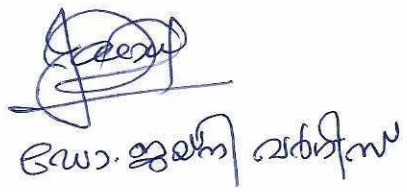 ഡോ. ജയ്നി വർഗീസ്